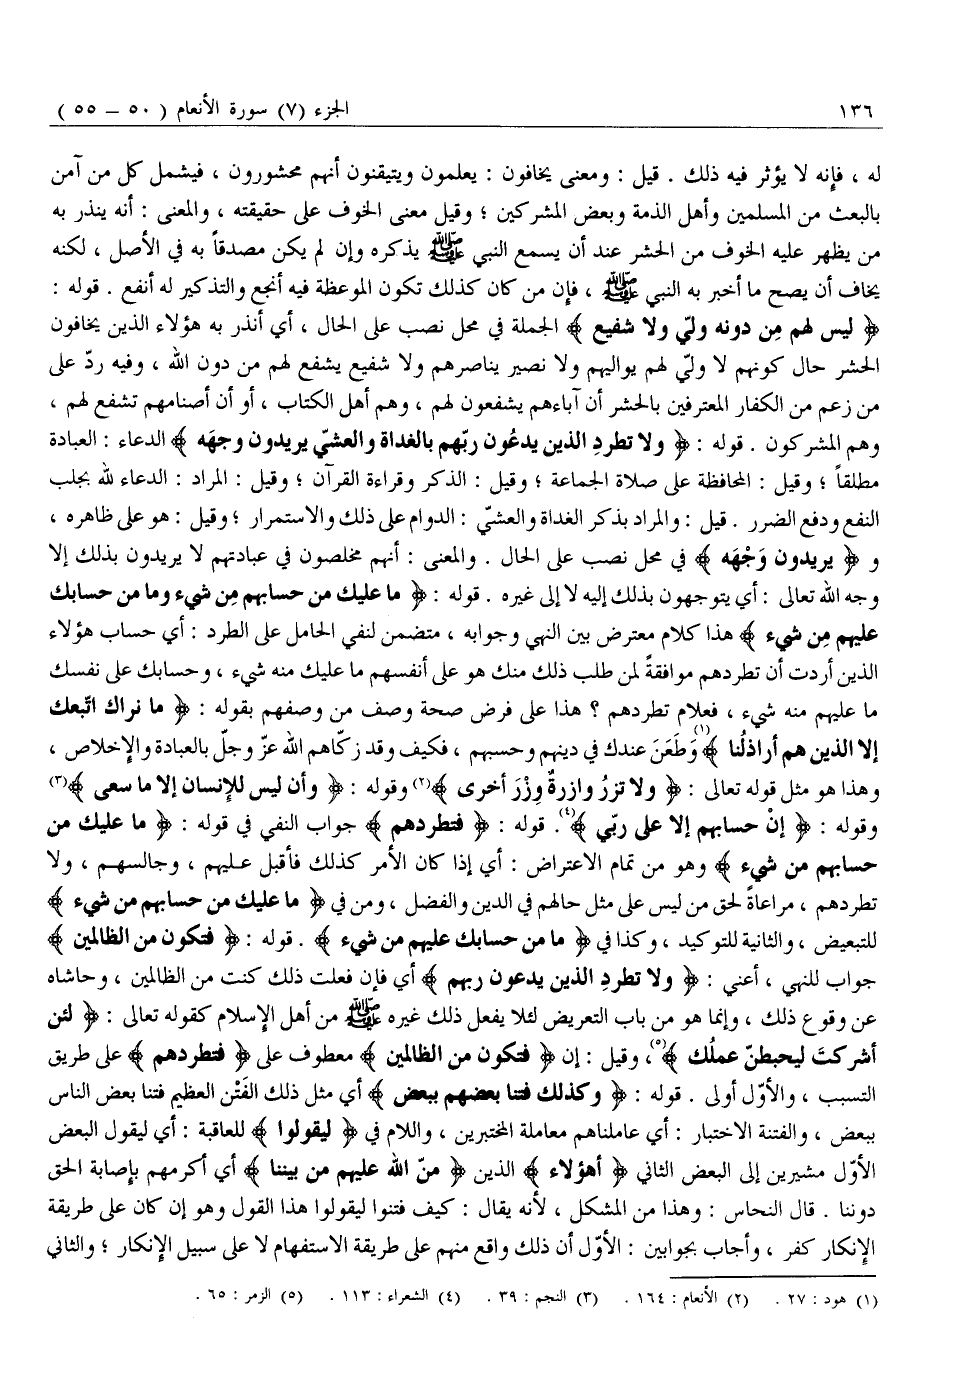 ١٣٦
الجزء (٧) سورة الأنعام ( ٥٠ – ٥٥ )
له ، فإنه لا يؤثر فيه ذلك . قيل : ومعنى يخافون : يعلمون ويتيقنون أنهم محشورون ، فيشمل كل من آمن
بالبعث من المسلمين وأهل الذمة وبعض المشركين ؛ وقيل معنى الخوف على حقيقته ، والمعنى : أنه ينذر به
من يظهر عليه الخوف من الحشر عند أن يسمع النبي ﷺ يذكره وإن لم يكن مصدقاً به في الأصل ، لكنه
يخاف أن يصح ما أخبر به النبي ﷺ ، فإن من كان كذلك تكون الموعظة فيه أنجع والتذكير له أنفع . قوله :
﴿ ليس لهم مِن دونه وليّ ولا شفيع ﴾ الجملة في محل نصب على الحال ، أي أنذر به هؤلاء الذين يخافون
الحشر حال كونهم لا وليّ لهم يواليهم ولا نصير يناصرهم ولا شفيع يشفع لهم من دون الله ، وفيه ردّ على
من زعم من الكفار المعترفين بالحشر أن آباءهم يشفعون لهم ، وهم أهل الكتاب ، أو أن أصنامهم تشفع لهم ،
وهم المشركون . قوله : ﴿ ولا تطردِ الذين يدعُون ربّهم بالغداة والعشيّ يريدون وجهَه ﴾ الدعاء : العبادة
مطلقاً ؛ وقيل : المحافظة على صلاة الجماعة ؛ وقيل : الذكر وقراءة القرآن ؛ وقيل : المراد : الدعاء لله بجلب
النفع ودفع الضرر . قيل : والمراد بذكر الغداة والعشيّ : الدوام على ذلك والاستمرار ؛ وقيل : هو على ظاهره ،
و ﴿ يريدون وَجْهَه ﴾ في محل نصب على الحال . والمعنى : أنهم مخلصون في عبادتهم لا يريدون بذلك إلا
وجه الله تعالى : أي يتوجهون بذلك إليه لا إلى غيره . قوله : ﴿ ما عليك من حسابهم مِن شيء وما من حسابك
عليهم مِن شيء ﴾ هذا كلام معترض بين النهي وجوابه ، متضمن لنفي الحامل على الطرد : أي حساب هؤلاء
الذين أردت أن تطردهم موافقةً لمن طلب ذلك منك هو على أنفسهم ما عليك منه شيء ، وحسابك على نفسك
ما عليهم منه شيء ، فعلام تطردهم ؟ هذا على فرض صحة وصف من وصفهم بقوله : ﴿ ما نراك اتّبعك
إلا الذين هم أراذلُنا ﴾(١) وَطَعَنَ عندك في دينهم وحسبهم ، فكيف وقد زكّاهم الله عزّ وجلّ بالعبادة والإخلاص ،
وهذا هو مثل قوله تعالى : ﴿ ولا تزرُ وازرةٌ وِزْرَ أخرى ﴾(٢) وقوله : ﴿ وأن ليس للإنسان إلا ما سعى ﴾(٣)
وقوله : ﴿ إنْ حسابهم إلا على ربّي ﴾(٤). قوله : ﴿ فتطردهم ﴾ جواب النفي في قوله : ﴿ ما عليك من
حسابهم من شيء ﴾ وهو من تمام الاعتراض : أي إذا كان الأمر كذلك فأقبل عليهم ، وجالسهم ، ولا
تطردهم ، مراعاةً لحق من ليس على مثل حالهم في الدين والفضل ، ومن في ﴿ ما عليك من حسابهم من شيء ﴾
للتبعيض ، والثانية للتوكيد ، وكذا في ﴿ ما من حسابك عليهم من شيء ﴾ . قوله : ﴿ فتكون من الظالمين ﴾
جواب للنهي ، أعني : ﴿ ولا تطردِ الذين يدعون ربهم ﴾ أي فإن فعلت ذلك كنت من الظالمين ، وحاشاه
عن وقوع ذلك ، وإنما هو من باب التعريض لئلا يفعل ذلك غيره ﷺ من أهل الإسلام كقوله تعالى : ﴿ لئن
أشركتَ ليحبطنّ عملُك ﴾(٥)، وقيل : إن ﴿ فتكون من الظالمين ﴾ معطوف على ﴿ فتطردهم ﴾ على طريق
التسبب ، والأوّل أولى . قوله : ﴿ وكذلك فتنا بعضهم ببعض ﴾ أي مثل ذلك الفَتْن العظيم فتنا بعض الناس
ببعض ، والفتنة الاختبار : أي عاملناهم معاملة المختبرين ، واللام في ﴿ ليقولوا ﴾ للعاقبة : أي ليقول البعض
الأوّل مشيرين إلى البعض الثاني ﴿ أهؤلاء ﴾ الذين ﴿ منّ الله عليهم من بيننا ﴾ أي أكرمهم بإصابة الحق
دوننا . قال النحاس : وهذا من المشكل ، لأنه يقال : كيف فتنوا ليقولوا هذا القول وهو إن كان على طريقة
الإنكار كفر ، وأجاب بجوابين : الأوّل أن ذلك واقع منهم على طريقة الاستفهام لا على سبيل الإنكار ؛ والثاني
(١) هود : ٢٧ . (٢) الأنعام : ١٦٤ . (٣) النجم : ٣٩ . (٤) الشعراء : ١١٣ . (٥) الزمر : ٦٥ .